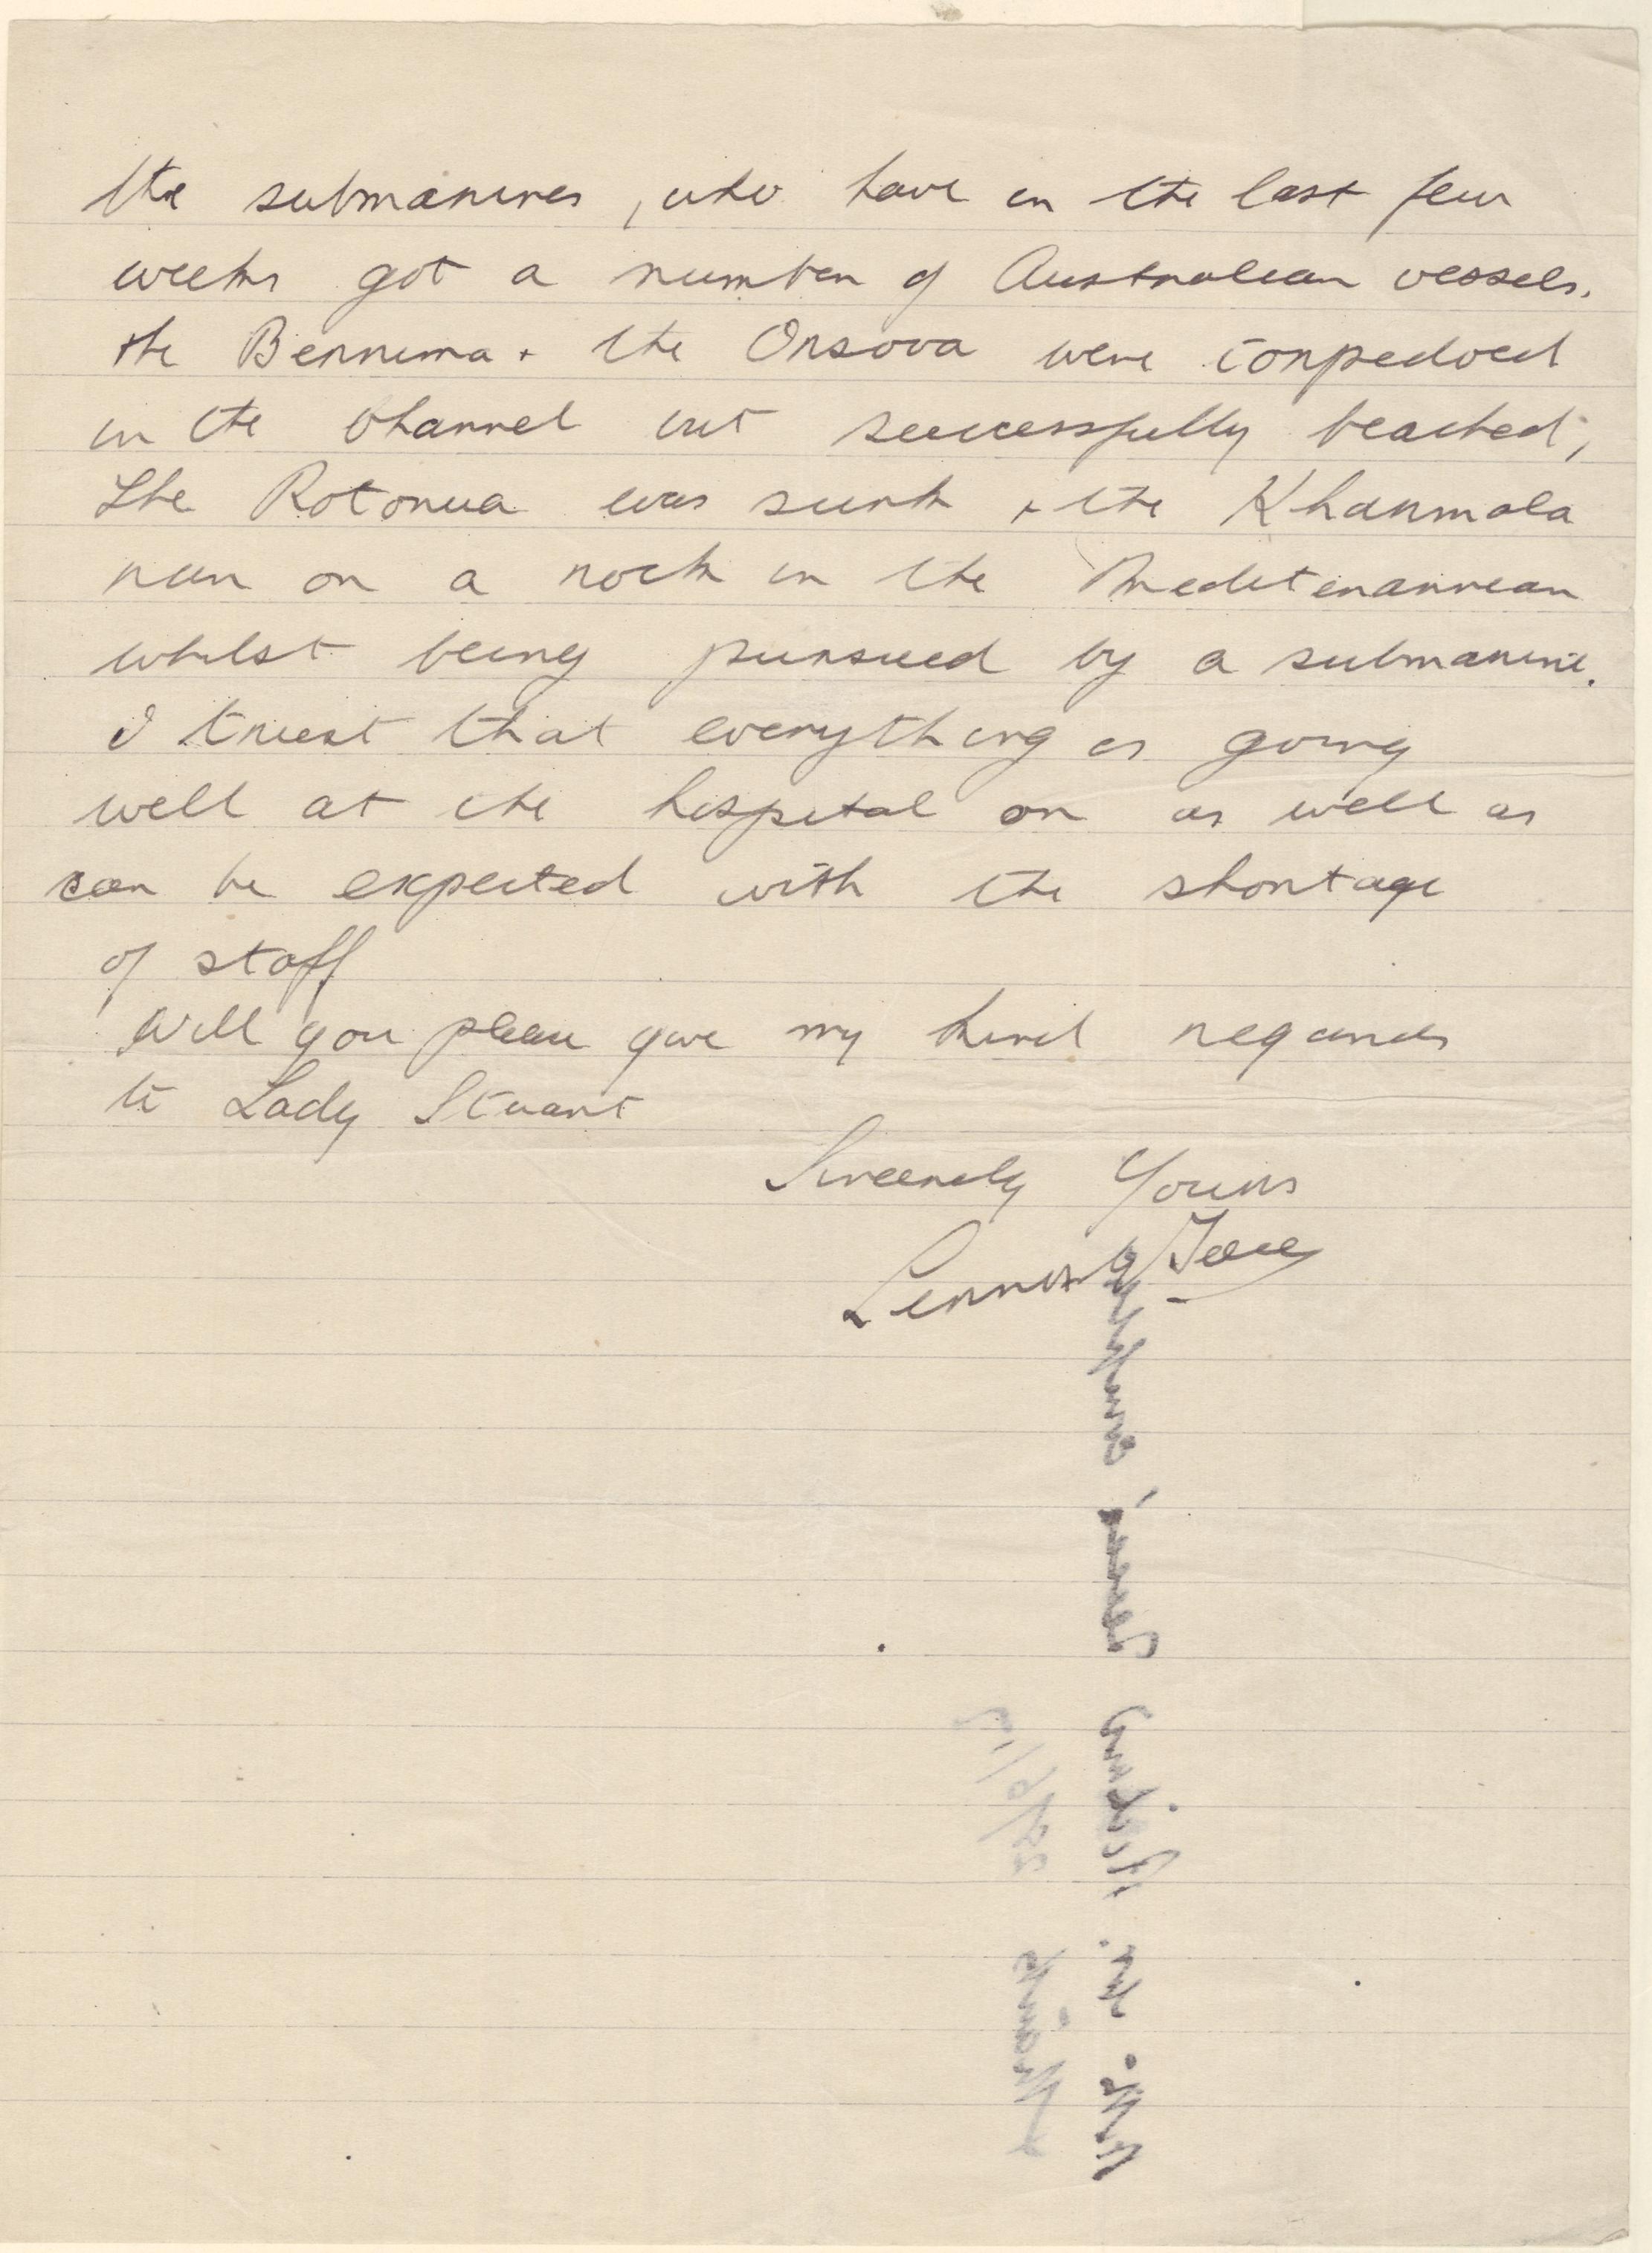 the submarines, who have in the last few
weeks got a number of Australian vessels.
the Berrima + the Orsova were torpedoed
in the channel but successfully beached,
The Rotorua was sunk + the Kharmala
ran on a rock in the Mediterannean
whilst being pursued by a submarine.
I trust that everything is going
well at the hospital or as well as
can be expected with the shortage
of staff
Will you please give my kind regards
to Lady Stuart
Sincerely Yours
Lennox Teece